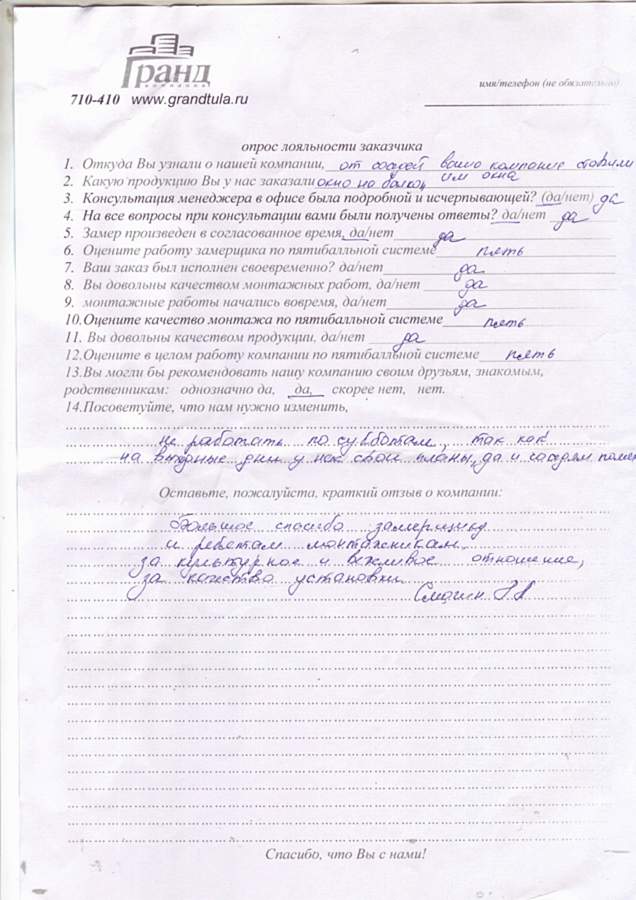 Гранд
компания
710-410 www.grandtula.ru
имя/телефон (не обязательно)
опрос лояльности заказчика
1. Откуда Вы узнали о нашей компании, от соседей ваша компание ставили
им окна
2. Какую продукцию Вы у нас заказали окно на балкон
3. Консультация менеджера в офисе была подробной и исчерпывающей? (да/нет) да
4. На все вопросы при консультации вами были получены ответы? да/нет да
5. Замер произведен в согласованное время, да/нет да
6. Оцените работу замерщика по пятибалльной системе пять
7. Ваш заказ был исполнен своевременно? да/нет да
8. Вы довольны качеством монтажных работ, да/нет да
9. монтажные работы начались вовремя, да/нет да
10.Оцените качество монтажа по пятибалльной системе пять
11. Вы довольны качеством продукции, да/нет да
12.Оцените в целом работу компании по пятибалльной системе пять
13.Вы могли бы рекомендовать нашу компанию своим друзьям, знакомым,
родственникам: однозначно да, да, скорее нет, нет.
14.Посоветуйте, что нам нужно изменить,
не работать по субботам, так как
на выходные дни у нас свои планы, да и соседям
Оставьте, пожалуйста, краткий отзыв о компании:
Большое спасибо замерщику
и ребятам монтажникам
за культурное и вежливое отношение,
за качество установки
Смагин
Спасибо, что Вы с нами!